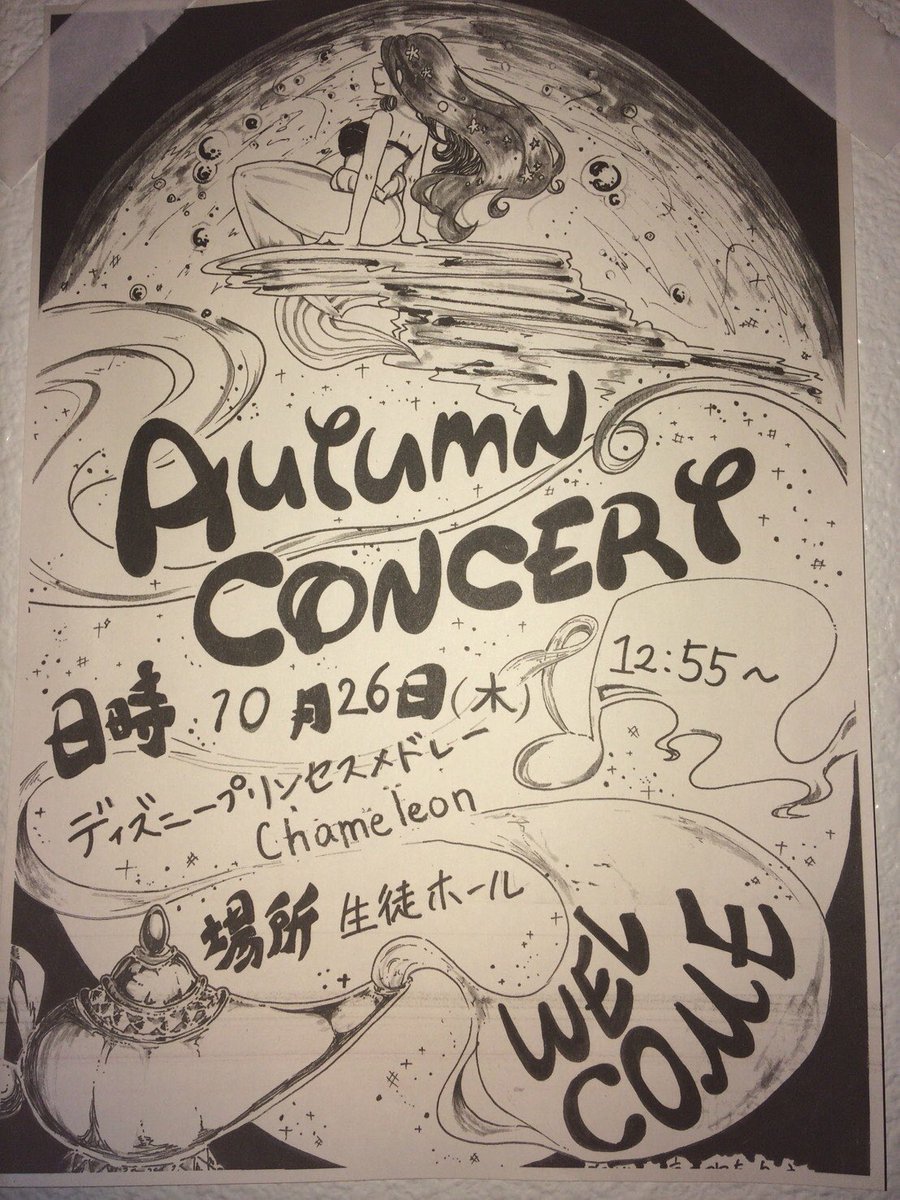 AUTUMN
CONCERT
12:55～
日時 10月26日(木)
ディズニープリンセスメドレー
Chameleon
場所 生徒ホール
WEL
COME